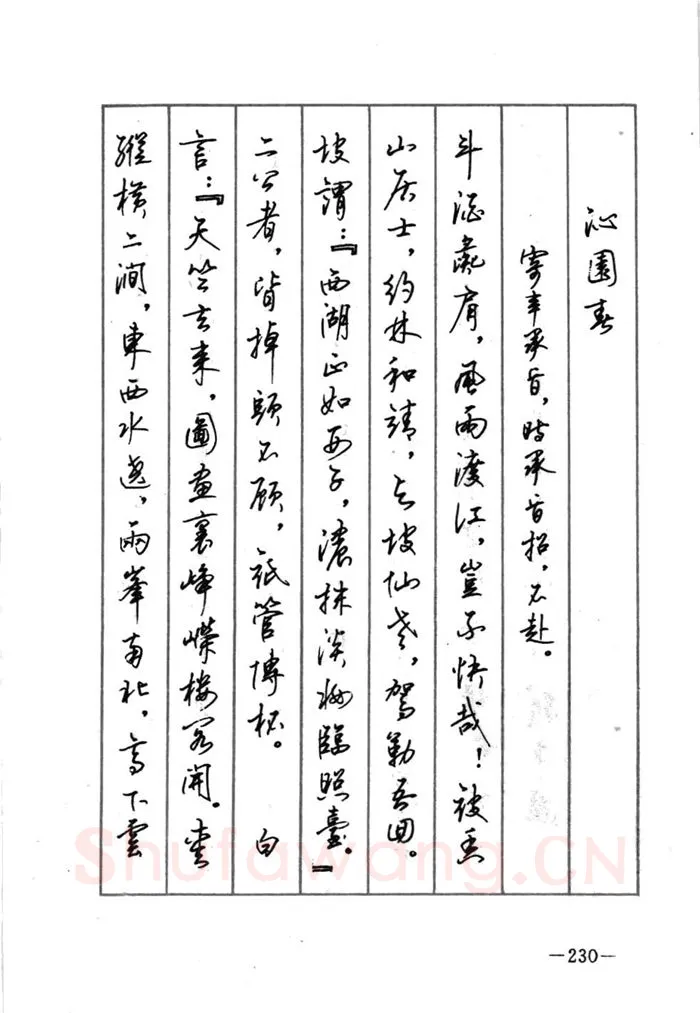 沁園春
寄辛承旨，時承旨招，不赴。
斗酒彘肩，風雨渡江，豈不快哉！被香
山居士，約林和靖，與坡仙老，駕勒吾回。
坡謂：『西湖正如西子，濃抹淡妝臨照臺。』
二公者，皆掉頭不顧，衹管傳杯。 白
言：『天竺去來，圖畫裏崢嶸樓閣開。愛
縱橫二澗，東西水遶，兩峯南北，高下雲
Shufawang.CN
—230—